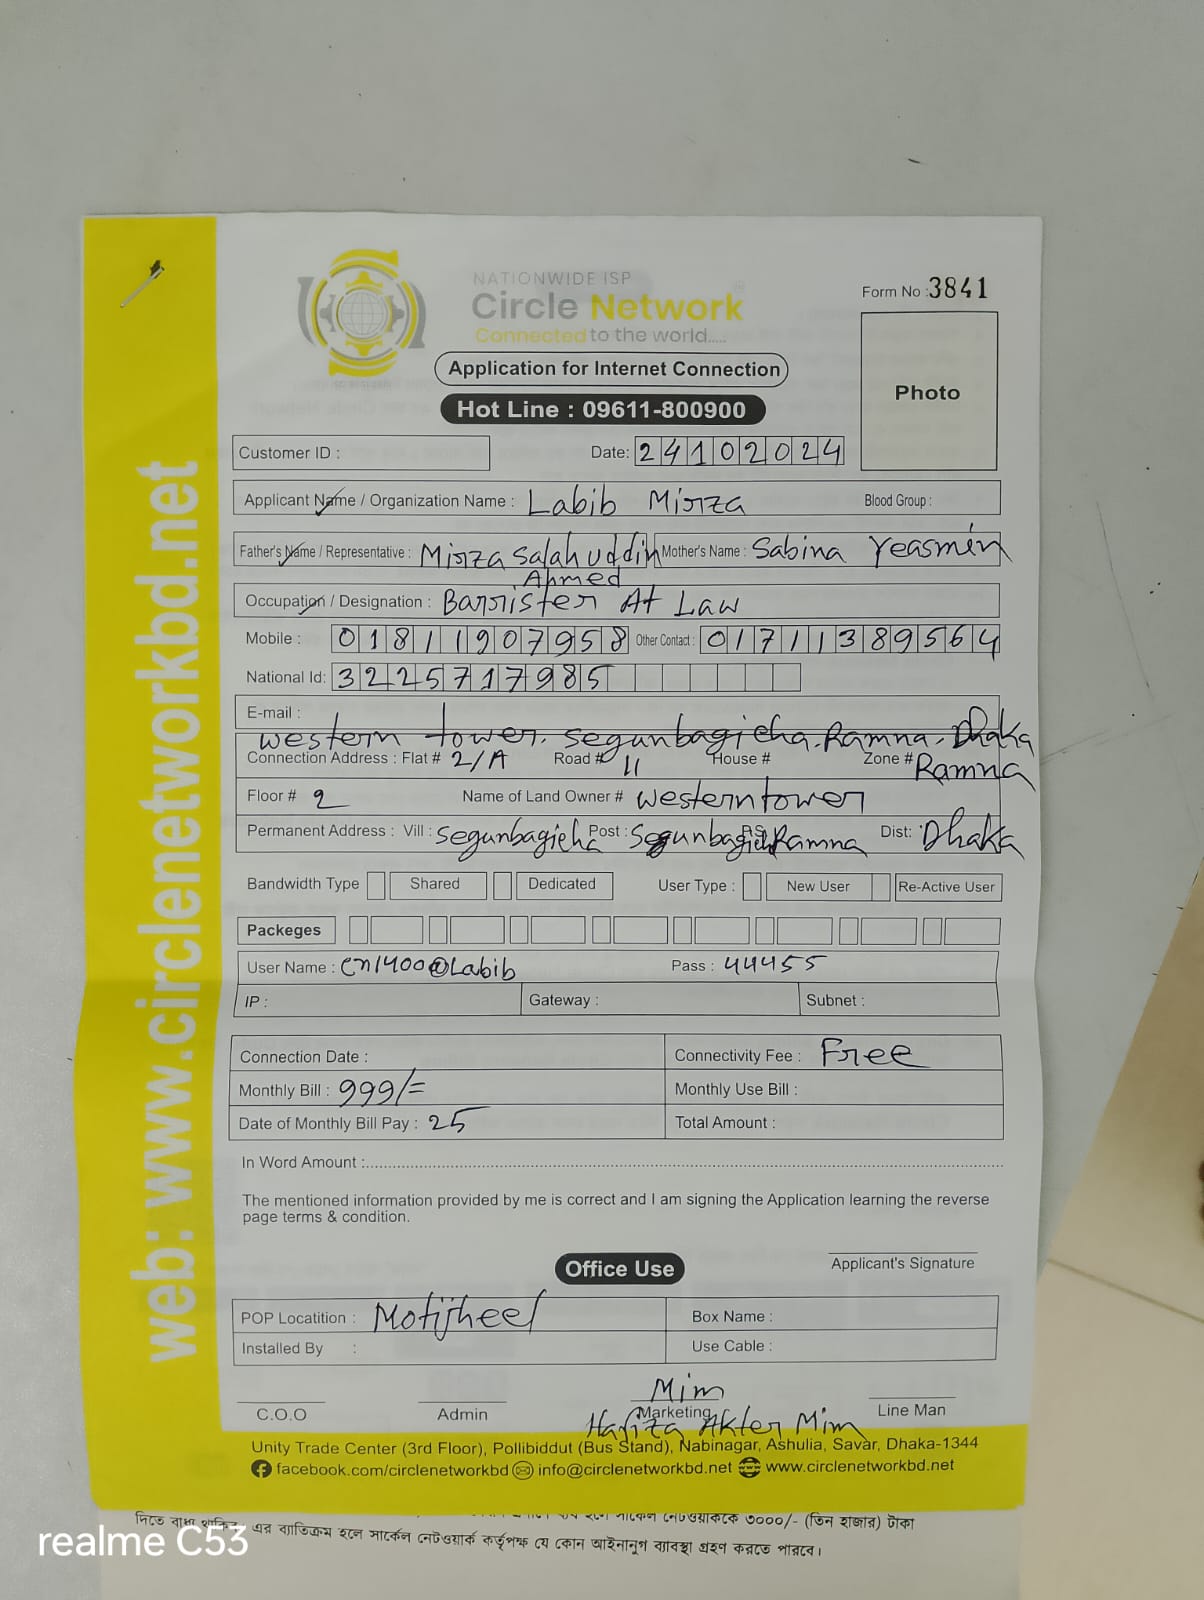 NATIONWIDE ISP
Circle Network
Connected to the world.....
Form No : 3841
Application for Internet Connection
Photo
Hot Line : 09611-800900
Customer ID :
Date: 24102024
Applicant Name / Organization Name : Labib Mirza Blood Group :
Father's Name / Representative : Mirza Salah uddin Ahmed Mother's Name : Sabina Yeasmin
Occupation / Designation : Barrister At Law
Mobile : 01811907958 Other Contact : 01711389564
National Id: 3225717985
E-mail :
western tower, segunbagicha, Ramna, Dhaka
Connection Address : Flat # 2/A Road # 11 House # Zone # Ramna
Floor # 2 Name of Land Owner # western tower
Permanent Address : Vill : segunbagicha Post : Segunbagicha P.S Ramna Dist: Dhaka
Bandwidth Type Shared Dedicated User Type : New User Re-Active User
Packeges
User Name : cn1400@Labib Pass : 44455
IP : Gateway : Subnet :
Connection Date : Connectivity Fee : Free
Monthly Bill : 999/= Monthly Use Bill :
Date of Monthly Bill Pay : 25 Total Amount :
In Word Amount :
The mentioned information provided by me is correct and I am signing the Application learning the reverse
page terms & condition.
Applicant's Signature
Office Use
POP Locatition : Motijheel Box Name :
Installed By : Use Cable :
Mim
C.O.O Admin Marketing Line Man
Hafiza Akter Mim
Unity Trade Center (3rd Floor), Pollibiddut (Bus Stand), Nabinagar, Ashulia, Savar, Dhaka-1344
facebook.com/circlenetworkbd info@circlenetworkbd.net www.circlenetworkbd.net
web: www.circlenetworkbd.net
দিতে বাধ্য থাকিব, সার্কেল নেটওয়ার্ককে ৩০০০/- (তিন হাজার) টাকা
এর ব্যাতিক্রম হলে সার্কেল নেটওয়ার্ক কর্তৃপক্ষ যে কোন আইনানুগ ব্যাবস্থা গ্রহণ করতে পারবে।
realme C53